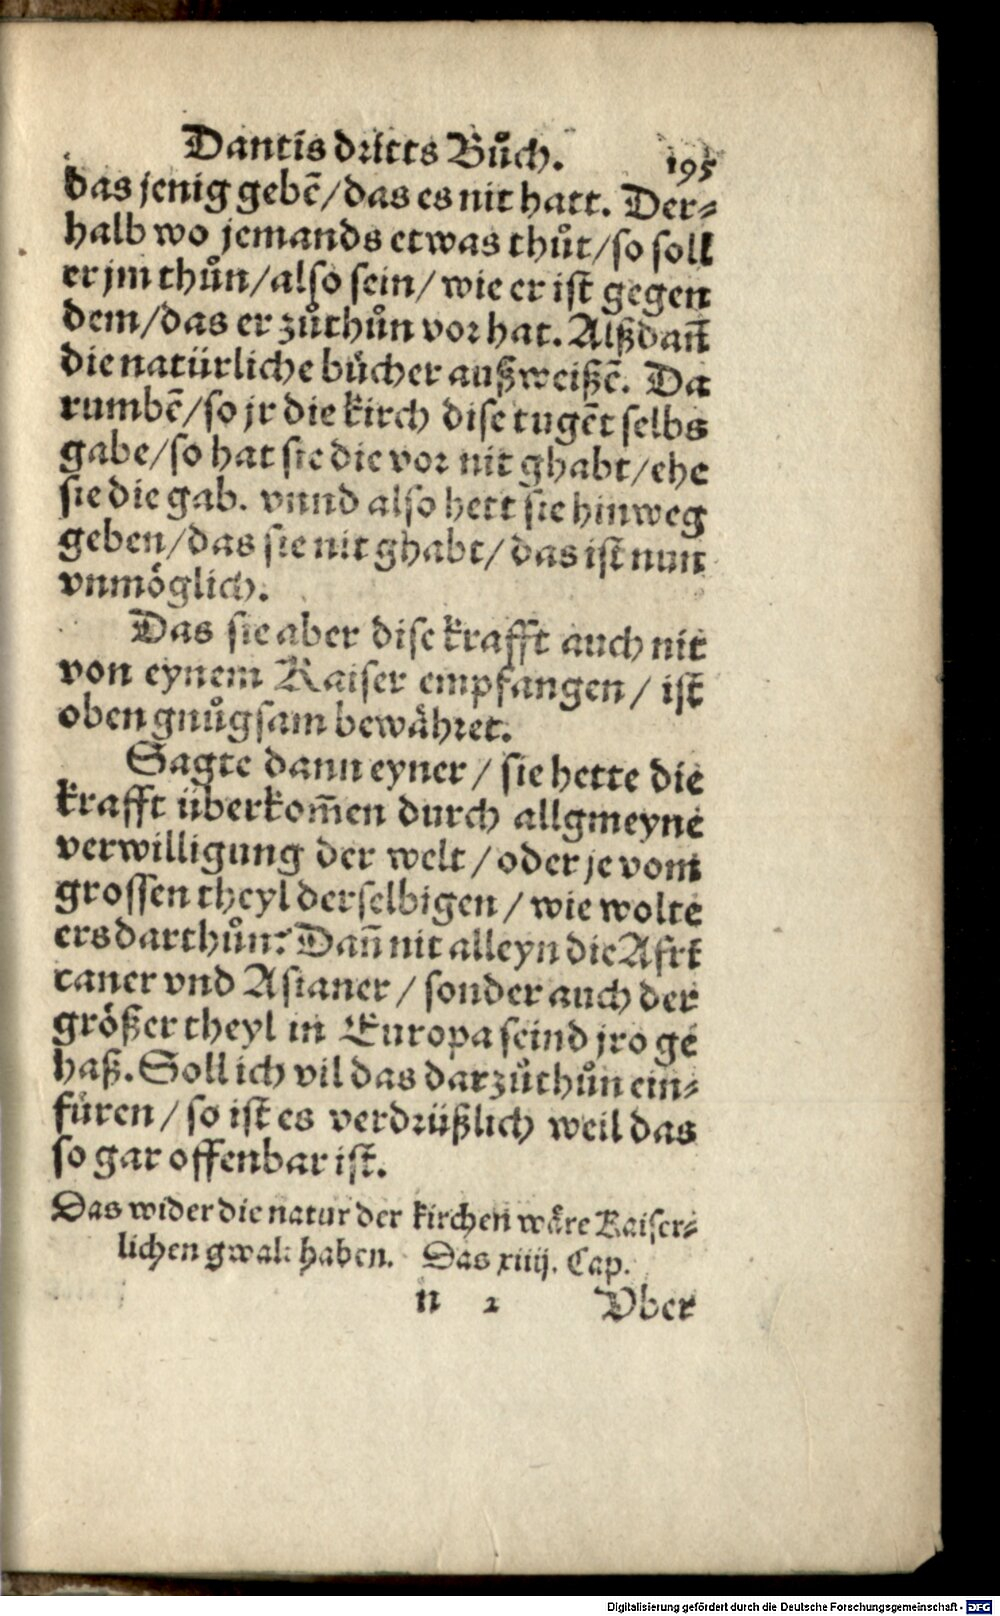 Dantis dritts Bůch. 195
das jenig gebē/das es nit hatt. Der-
halb wo jemands etwas thůt/so soll
er jm thůn/also sein/wie er ist gegen
dem/das er zůthůn vor hat. Alßdañ
die natürliche bücher außweißē. Da
rumbē/so jr die kirch dise tugēt selbs
gabe/so hat sie die vor nit ghabt/ehe
sie die gab. vnnd also hett sie hinweg
geben/das sie nit ghabt/das ist nun
vnmöglich.
Das sie aber dise krafft auch nit
von eynem Kaiser empfangen/ist
oben gnůgsam bewähret.
Sagte dann eyner/sie hette die
krafft überkom̄en durch allgmeyne
verwilligung der welt/oder je vom
grossen theyl derselbigen/wie wolte
ers darthůn? Dañ nit alleyn die Afri
caner vnd Asianer/sonder auch der
größer theyl in Europa seind jro ge
haß. Soll ich vil das darzůthůn ein-
füren/so ist es verdrüßlich weil das
so gar offenbar ist.
Das wider die natur der kirchen wäre Kaiser-
lichen gwalt haben. Das xiiij. Cap.
n 2 Vber
Digitalisierung gefördert durch die Deutsche Forschungsgemeinschaft - DFG